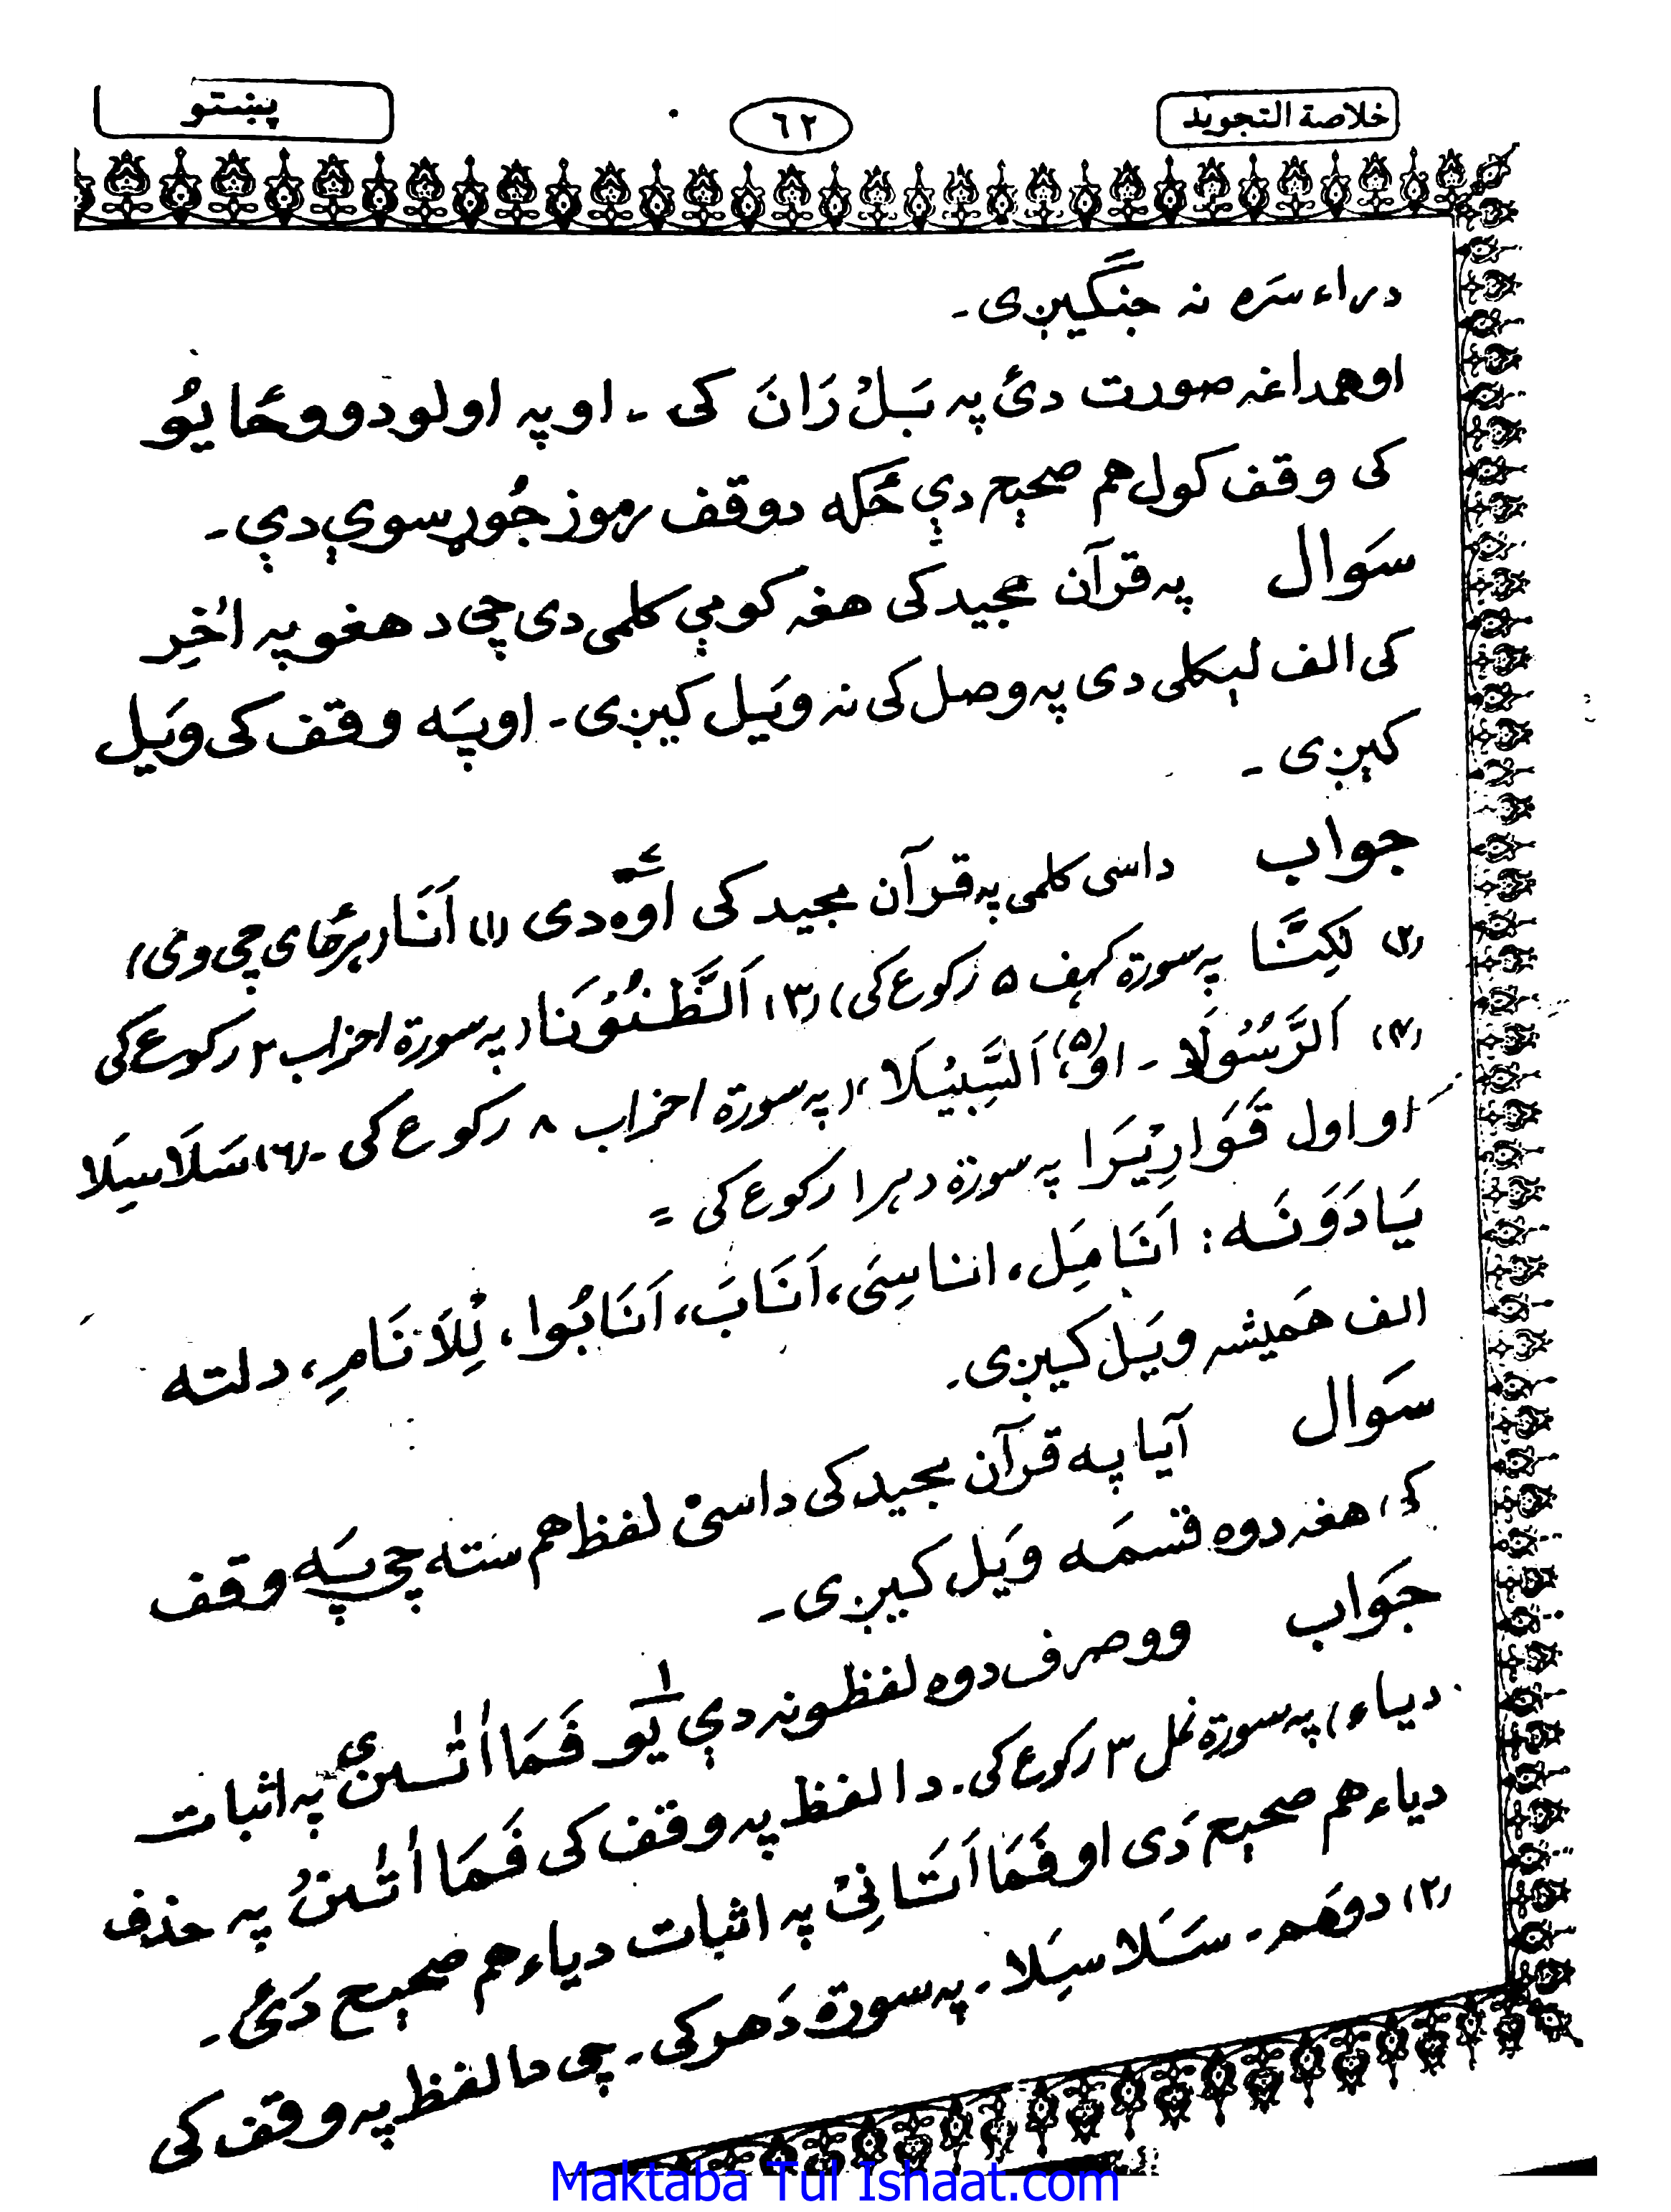 خلاصة التجوید
٦٢
پښتو
د راء سَره نه جنګیږی۔
او همداغه صورت دئ په بَلْ رَانَ کی ۔ او په اولو دوو ځایُو
کی وقف کول هم صحیح دې ځکه د وقف رموز جُوړ سوې دې۔
سَوال په قرآن مجید کی هغه کومې کلمی دی چی د هغو په اخِر
کی الف لیکلی دی په وصل کی نه ویَل کیږی۔ او په وقف کی ویَل
کیږی ۔
جواب داسی کلمی په قرآن مجید کی اوّه دی (۱) اَنَا (هر ځای چی وی)
(۲) لٰکِنَّا په سورة کهف ۵ رکوع کی) (۳) اَلظُّنُوْنَا (په سورة احزاب ۲ رکوع کی
(۴) اَلرَّسُوْلَا ۔ او (۵) اَلسَّبِیْلَا، (په سورة احزاب ۸ رکوع کی ۔ (٦) سَلَاسِلَا
او اول قَوَارِیْرَا په سورة دهر ۱ رکوع کی =
یَادَوَنَه : اَنَامِلَ، اناسِیَ، اَنَابَ، اَنَابُوا، لِلْاَنَامِ، دلته
الف همَیشه ویَل کیږی۔
سَوال آیا په قرآن مجید کی داسیْ لفظ هم سَته چی پَه وقف
کی هغه دوه قسمَه ویَل کیږی۔
جَواب وو صرف دوه لفظونه دې ۱ یَو فَمَا اٰتٰىنِۦَ په اثبات
د یاء) په سورة نمل ۳ رکوع کی۔ دا لفظ په وقف کی فَمَا اٰتٰىنْ په حذف
د یاء هم صحیح دَی او فَمَا اَتَانِیْ په اثبات د یاء هم صحیح دَئ۔
(۲) دوهَم ۔ سَلَاسِلَا ۔ په سورة دَهر کی ۔ چی دا لفظ په وقف کی
Maktaba Tul Ishaat.com